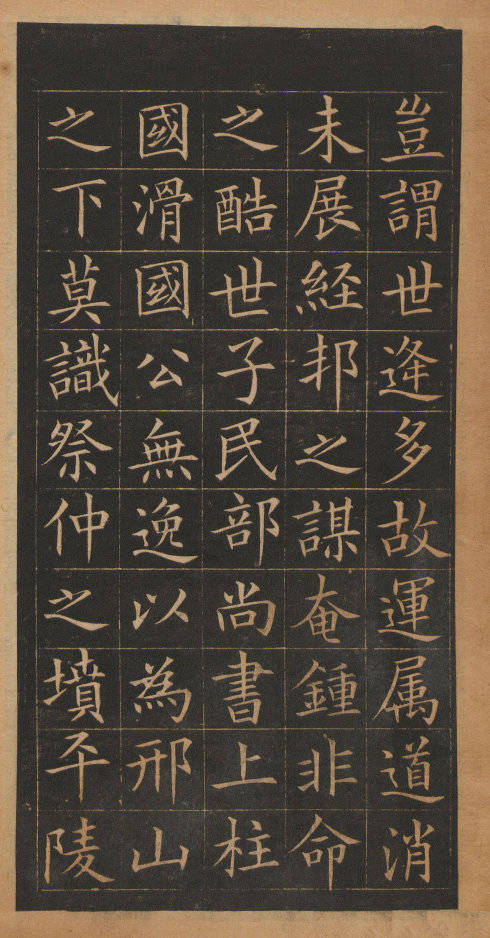 豈謂世逄多故運属道消
未展經邦之謀奄鍾非命
之酷世子民部尚書上柱
國滑國公無逸以為邢山
之下莫識祭仲之墳平陵